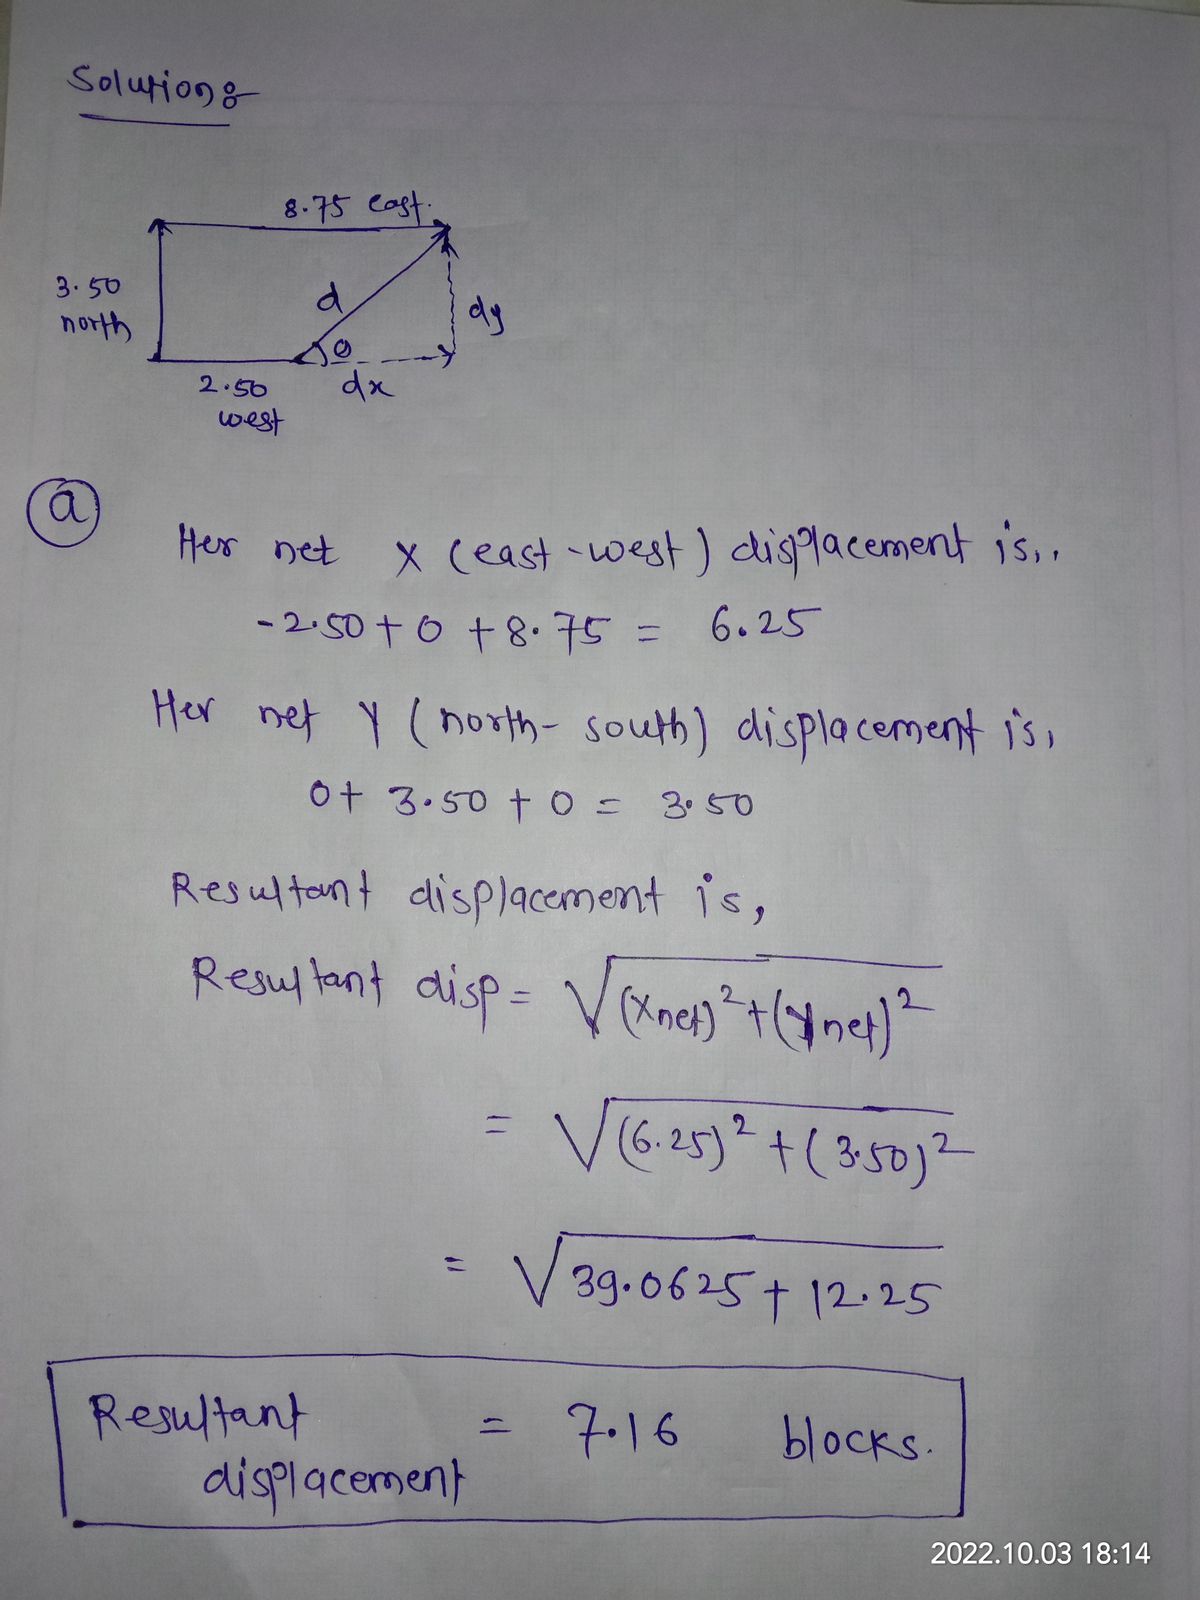 Solution:-
8.75 east.
3.50
north
d
dy
θ
2.50
west
dx
a
Her net X (east-west) displacement is,.
-2.50 + 0 + 8.75 = 6.25
Her net Y (north- south) displacement is,
0 + 3.50 + 0 = 3.50
Resultant displacement is,
Resultant disp = √(Xnet)² + (Ynet)²
= √(6.25)² + (3.50)²
= √39.0625 + 12.25
Resultant
displacement = 7.16 blocks.
2022.10.03 18:14